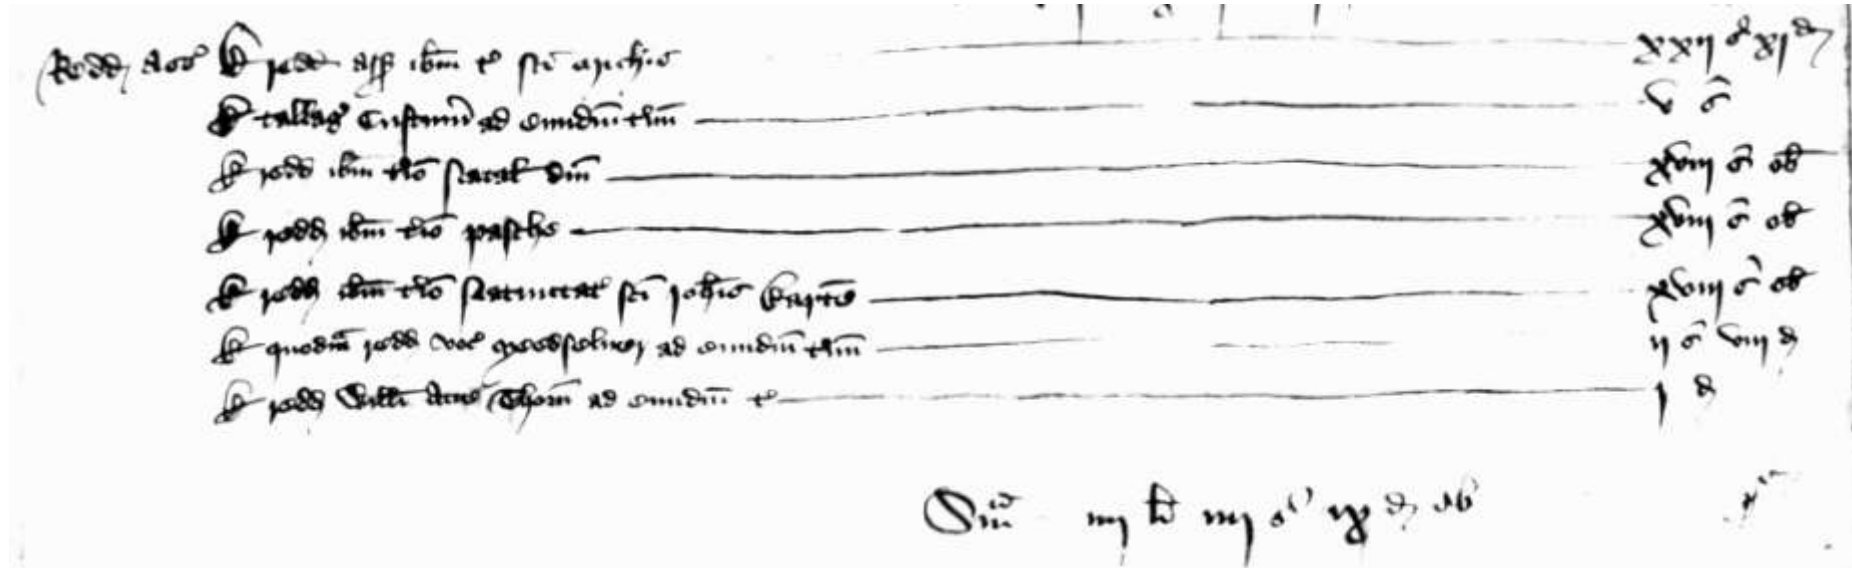 Redd ass' De redd ass ibm t' sci michis xxij s' xj d
De tallag' Custum' ad eundm t'm v s
De redd ibm t'io Natal' dni xviij s ob
De redd ibm t'io pasche xviij s ob
De redd ibm t'io Natiuitat' sci Joh'is Bapte xviij s ob
De quodam redd voc' medseluer ad eundm t'm ij s viij d
De redd Willi Atte Thorn ad eundm t' j d
Sma iiij li iiij s' ix d ob